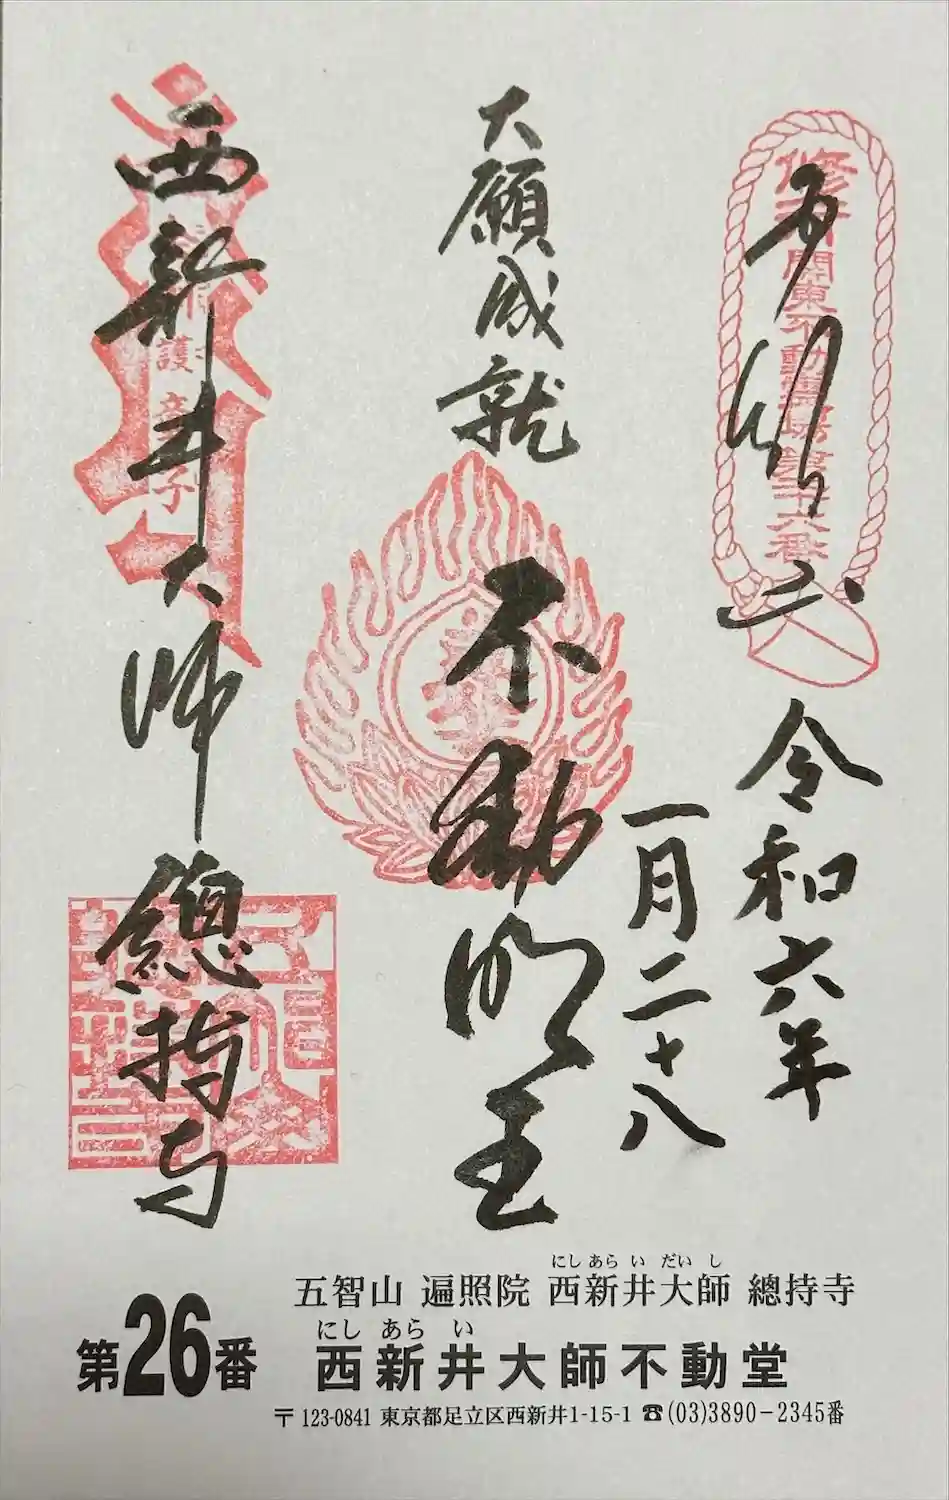 奉拝
令和六年
一月二十八
大願成就
不動明王
西新井大師總持寺
関東不動霊場第二十六番
にしあらいだいし
五智山 遍照院 西新井大師 總持寺
にし あら い
西新井大師不動堂
第26番
〒123-0841 東京都足立区西新井1-15-1 ☎(03)3890-2345番